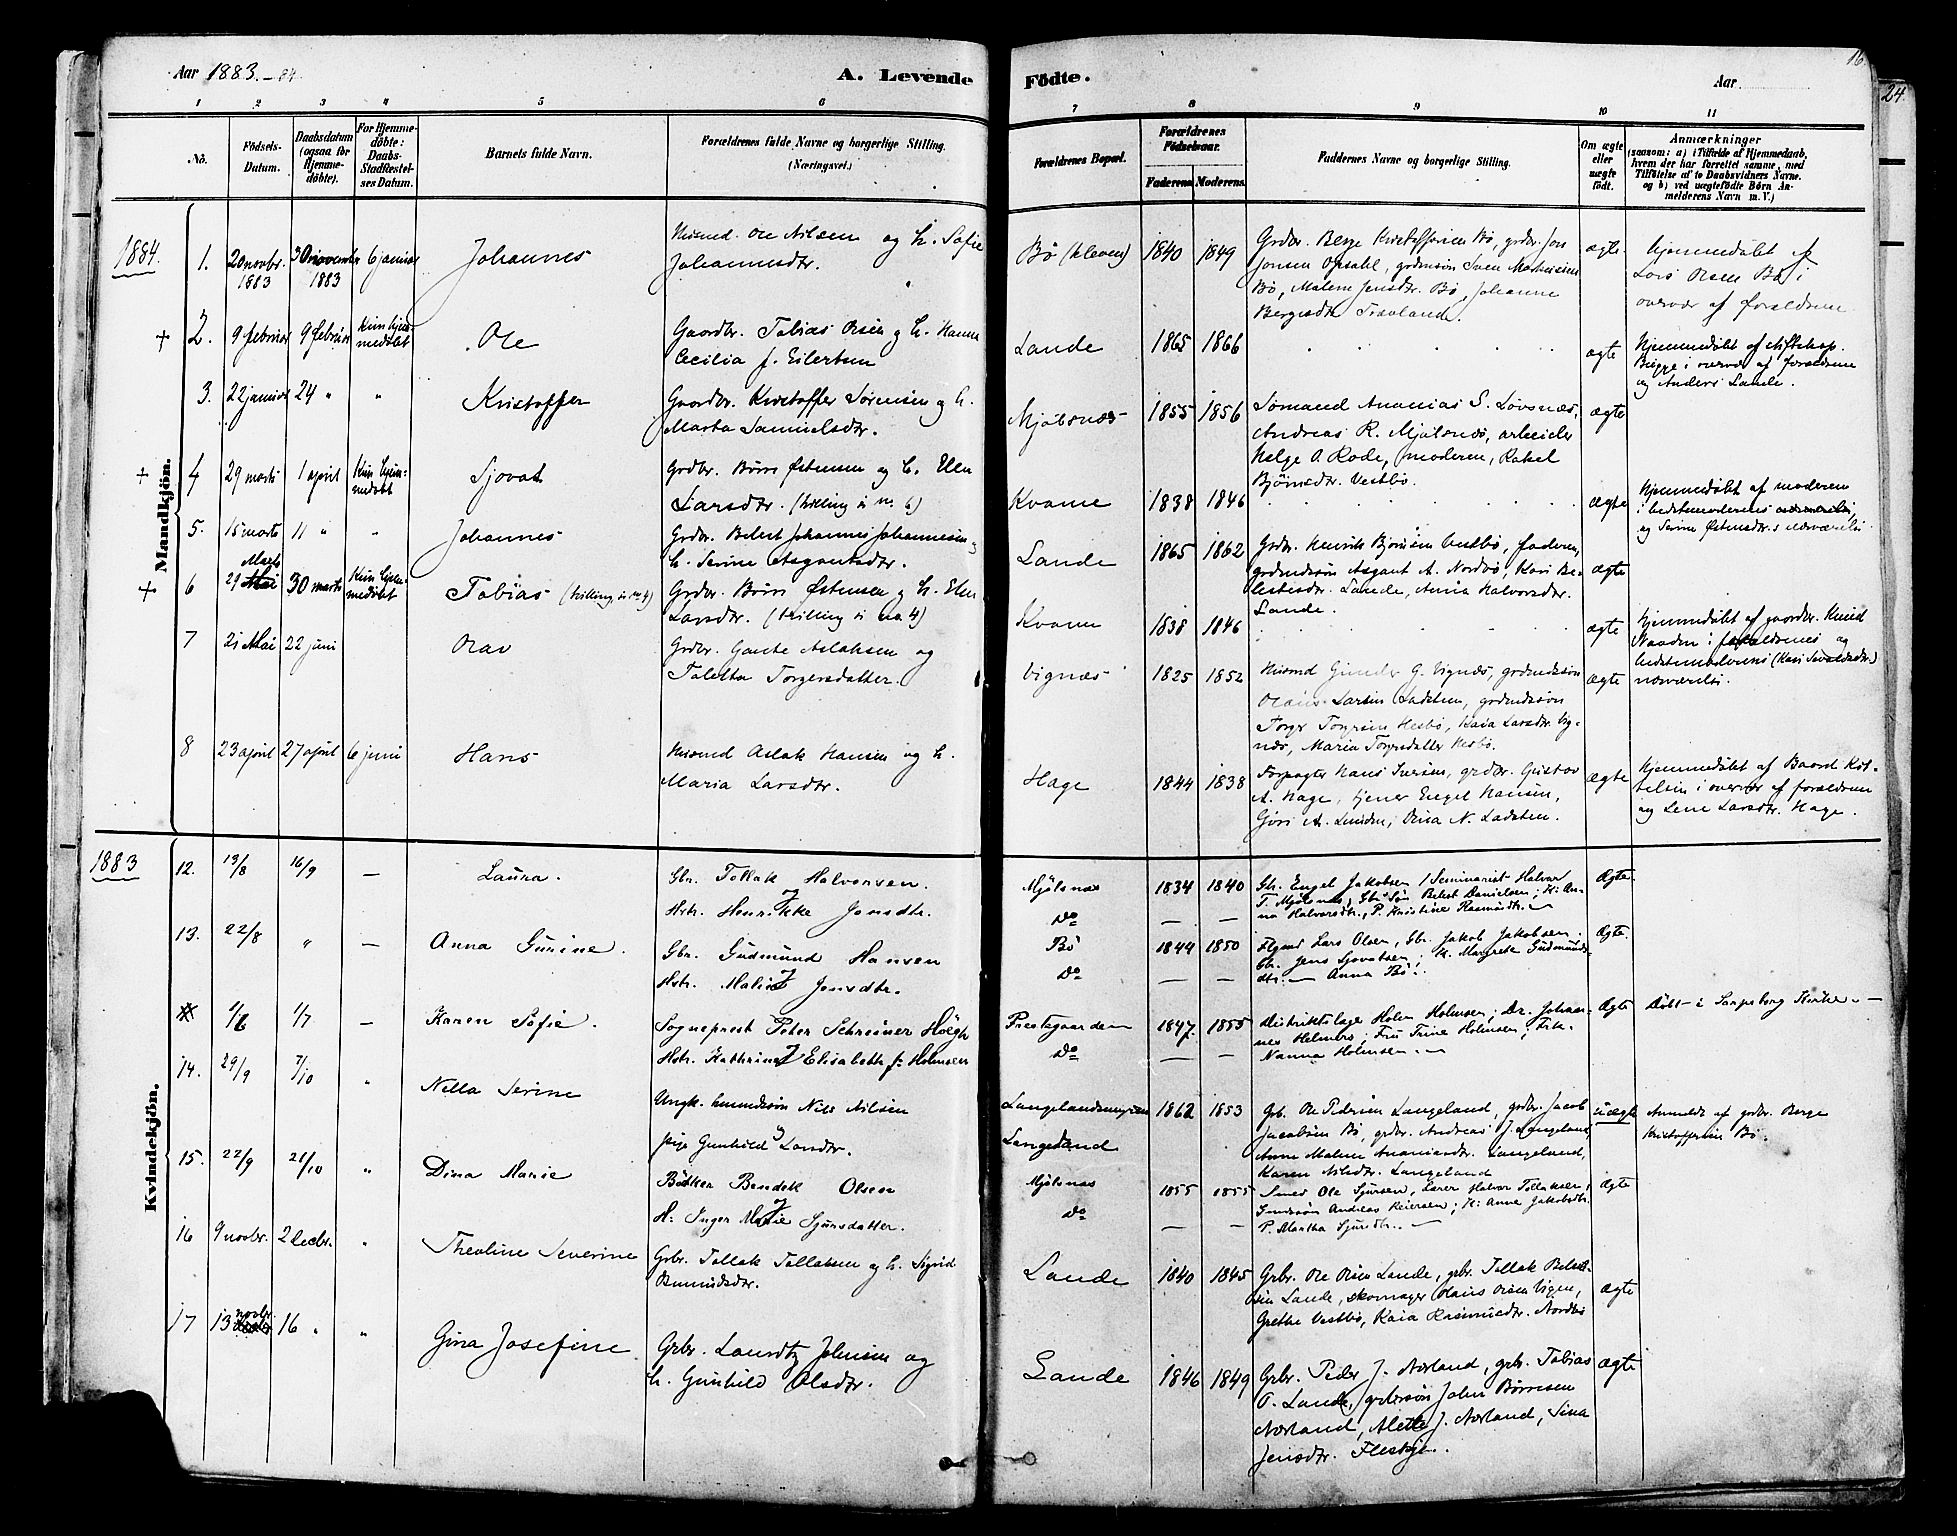 Aar 1883.-84
A. Levende
Födte.
Aar
16.
24.
1 2 3 4 5 6 7 8 9 10 11
No.
Födsels-Datum.
Daabsdatum (ogsaa for Hjemme-döbte).
For Hjemme-döbte: Daabs-Stadfæstel-ses Datum.
Barnets fulde Navn.
Forældrenes fulde Navne og borgerlige Stilling. (Næringsvei.)
Forældrenes Bopæl.
Forældrenes Födselsaar.
Faderens. Moderens.
Faddernes Navne og borgerlige Stilling.
Om ægte eller uægte födt.
Anmærkninger
(saasom: a) i Tilfælde af Hjemmedaab,
hvem der har forrettet samme, med
Tilföielse af to Daabsvidners Navne.
og b) ved uægtefödte Börn An-
melderens Navn m. V.)
Mandkjön.
1884.
1. 20 novbr. 1883 30 november 1883 6 januar Johannes
Husmd. Ole Nilsen og h. Sofie
Johannesdtr.
Bö (kleven) 1840 1849
Grdbr. Berge Kristoffersen Bö, grdbr. Jon
Jonsen Opsahl, grdmsön Sven Markussen
Bö, Malene Jensdtr. Bö, Johanne
Bergesdtr.
ægte
Hjemmedöbt af
Lars Olsen Bö i
overvær af forældrene
+ 2. 9 februar 9 februar Kun hjem-medöbt Ole
Gaardbr. Tobias Olsen og h. Hanna
Cecilia f. Eilertsen
Lande 1865 1866 ægte
Hjemmedöbt af
Brigge i overvær af forældrene
og Anders Lande.
3. 22 januar 24 " " Kristoffer
Gaardbr. Kristoffer Sörensen og h.
Marta Samuelsdtr.
Mjölsnæs 1855 1856
Sömand Ananias S. Lövsnæs,
Andreas R. Mjölsnæs, arbeider
Helge O. Rode, moderen, Rakel
Björnsdtr. Vestbö.
ægte
+ 4 29 marts 1 april Kun hjem-medöbt Sjovat
Grdbr. Börre Östensen og h. Elen
Larsdtr. (tvilling i no. 6)
Kvame 1838 1846 ægte
Hjemmedöbt af moderen
i bedstemoderens
og Serine Östensdtr.s nærværelse
5. 15 marts 11 " " Johannes
Grdbr. Belest Johannes Johannesen og
h. Serine Asgautsdtr.
Lande 1865 1862
Grdbr. Henrik Bjornsen Vestbö, faderen,
grdmdssön Asgaut A. Nordbö, Kari Be-
lestsdtr. Lande, Anna Halvorsdtr.
Lande.
ægte
+ 6 29 Marts 30 marts Kun hjem-medöbt Tobias (tvilling i no. 4)
Grdbr. Börre Östensen og h. Elen
Larsdtr. (tvilling i no. 4)
Kvame 1838 1846 ægte
Hjemmedöbt af gaardbr. Knud
i forældrenes og
bedstemoderens (Kari Sevaldsdtr.)
nærværelse.
7 21 Mai 22 juni Olav
Grdbr. Gaute Aslaksen og
Taletta Torgersdatter.
Vignæs 1825 1852
Husmd Gunder G. Vignæs, grdmdssön
Olaus Larsen Ladsten, grdmdssön
Torger Torgersen Hesbö, Kaia Larsdtr. Vig-
næs, Maria Torgersdatter Hesbö.
ægte
8 23 april 27 april 6 juni Hans
Husmd Aslak Hansen og h.
Maria Larsdtr.
Hage 1844 1838
Forpagter Hans Iversen, grdbr. Gustav
A. Hage, tjener Engel Hansen,
Gjöri A. Lunden, Orina N. Ladsten.
ægte
Hjemmedöbt af Baard
i overvær af forældrene
og Lene Larsdtr. Hage.
Kvindekjön.
1883
12. 13/8 16/9 — Laura.
Gbr. Tollak Halvorsen.
Hstr. Henrikke Jonsdtr.
Mjölsnæs 1834 1840
Do — —
Gbr. Engel Jakobsen, Seminarist Halvor
T. Mjölsnæs, Gbr Sön Belest Danielsen; K: An-
na Halvorsdtr., P. Kristine Rasmusdtr.—
Ægte.
13. 22/8 " — Anna Gurine.
Gbr. Gudmund Hansen
Hstr. Malie Jonsdtr.
Bö 1844 1850
Do — —
Flgmd Lars Olsen, Gbr. Jakob Jakobsen.
Gbr. Jens Sjovatsen; K. Margrete Gudmunds-
dtr.— Anna Bö.
Ægte.
1/6 1/7 — Karen Sofie.
Sogneprest Peter Schreiner Höegh
Hstr. Kathrine Elisabeth f: Holmsen
Prestegaarden 1847 1855
Do — —
Distriktslæge Holm Holmsen; Dr. Johan-
nes Helmers, Fru Trine Holmsen; Frk.
Nanna Holmsen.—
Ægte
Döbt i Sarpsborg Kirke.—
14. 29/9 7/10 " Nella Serine
Ungk. husmdssön Nils Nilsen
pige Gunhild Larsdtr.
Langelandsmyren 1862 1853
Langeland
Gb. Ole Pedersen Langeland, grdbr. Jacob
Jacobsen Bö, grdbr. Andreas J. Langeland,
Anne Malene Ananiasdtr. Langeland,
Karen Nilsdtr. Langeland
uægte
Anmeldt af grdbr. Berge
Kristoffersen Bö.
15. 22/9 21/10 " Dina Marie
Bödker Bendik Olsen
H: Inger Marie Sjursdatter.
Mjölsnæs 1855 1855
Do — —
Smed Ole Sjursen, Lærer Halvor Tollaksen,
Gmdssön Andreas Reiersen; K: Anne Jakobsdtr.
P. Martha Sjursdtr.—
Ægte
16 9 novbr. 2 Decbr. " Theoline Severine
Grbr. Tollak Tollaksen og h. Sigrid
Amundsdtr.
Lande 1840 1845
Grbr. Ole Olsen Lande, grbr. Tollak Belest-
sen Lande, skomager Olaus Olsen Vigen,
Grethe Vestbö, Kaia Rasmusdtr. Nordbö
ægte
17 13 novbr 16 " " Gina Josefine
Grbr. Lauritz Johnsen og
h. Gunhild Olsdtr.
Lande 1846 1849
Grbr. Peder J. Aarland, grbr. Tobias
O. Lande, grbrsön John Börresen
Aarland, Alette J. Aarland, Sina
Jensdtr. Fleskje.
ægte